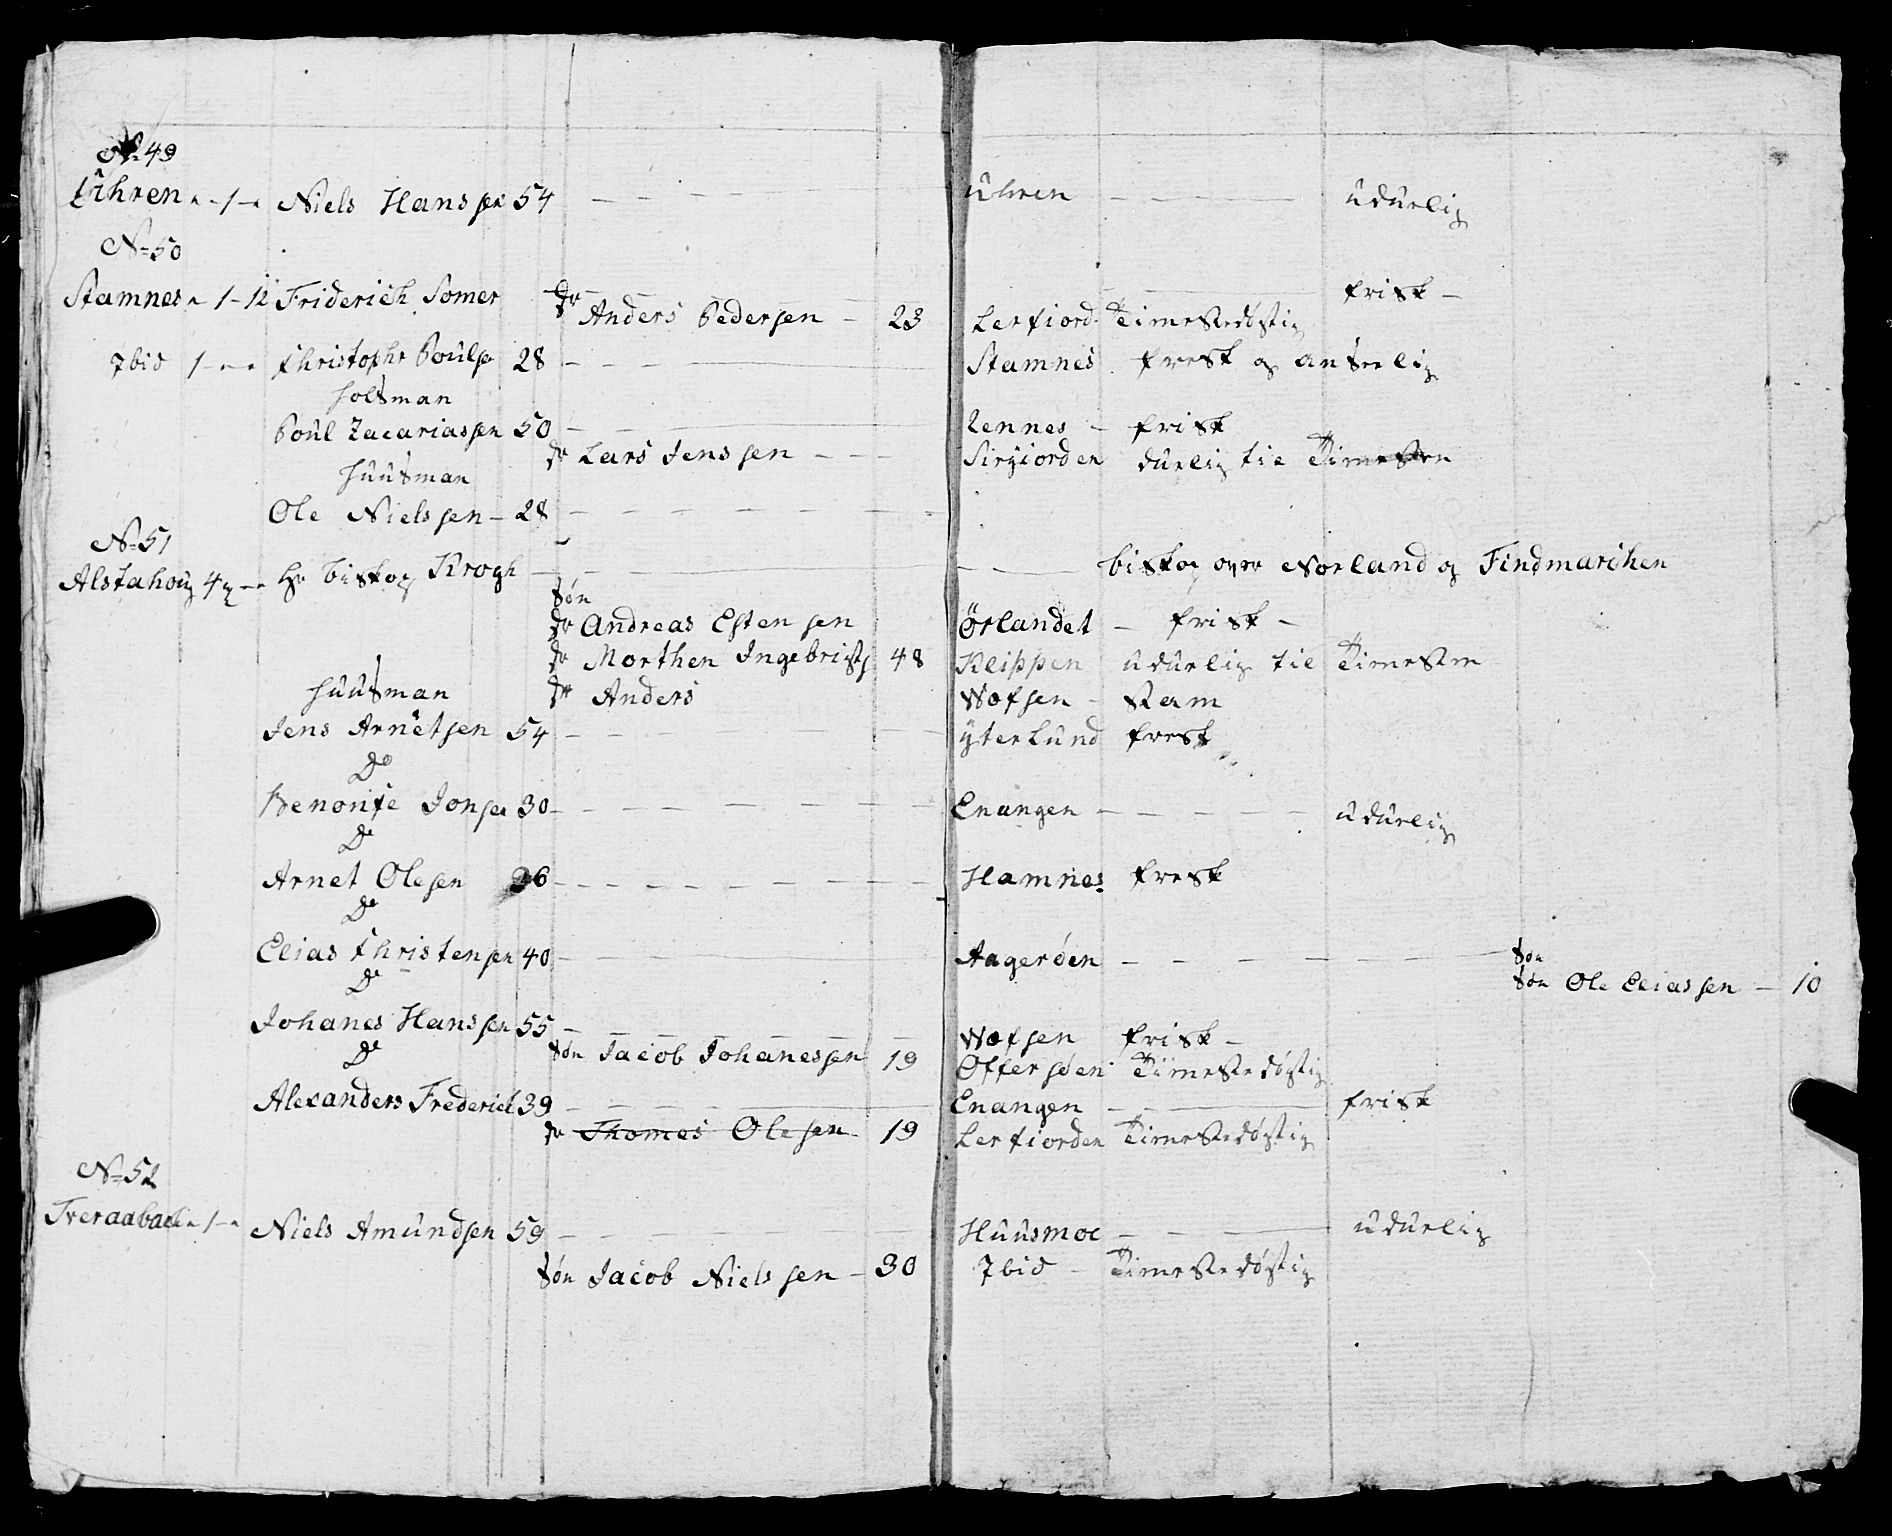 No 49
Uhren - 1 - Niels Hanssen 54 — — — Uhren — — udurlig
No 50
Stamnes - 1 - 12 Friderich Somer — — — frisk —
dr Anders Pedersen — 23 Lerfiord
Ibid 1 - Christophr Poulse 28 — — — Stamnes fresk og anseelig
huusman
Poul Zacariassen 50 — — Zennes — frisk
dr Lars Jenssen — — — durlig til
huusman
Ole Nielssen — 28 — — —
No 51
Alstahoug 4 Hr biskop Krogh — — — biskop over Norland og Findmarchen
søn
dr Andreas Estensen Örlandet — frisk —
dr Morthen Ingebrigts 48 Kleippen udurlig til
dr Anders Wefsen —
huusman
Jens Arnetsen 54 — — — yterlund fresk
Do
Jonsen 30 — — — Enangen — — udurlig
Do
Arnet Olesen 26 — — — Hamnes fresk
Do
Elias Christensen 40 — — — Aagerøen — — — søn
søn Ole Eliassen — 10
Do
Johanes Hanssen 55 — — — Wefsen frisk —
søn Jacob Johanessen 19 Offersøen
Do
Alexanders Frederich 39 — — — Enangen — — frisk
dr Thomes Olesen 19 Lerfiorden
No 52
- 1 - Niels Amundsen 59 — — — Huusmoe — — udurlig
søn Jacob Nielssen — 30 Ibid —